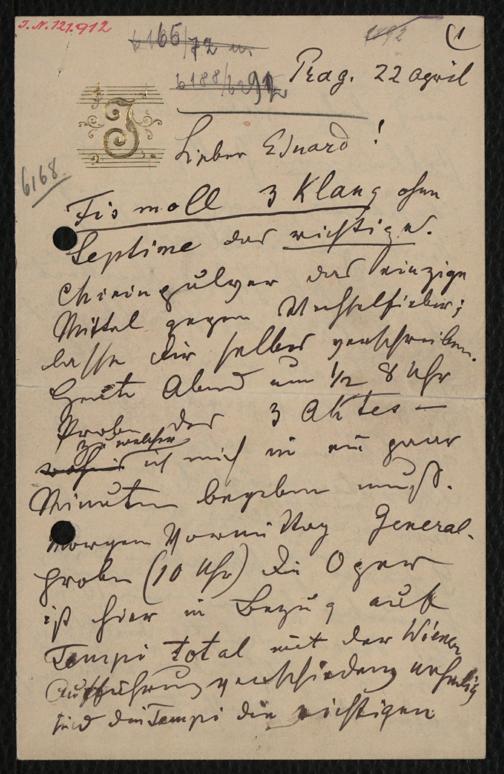 I.N. 121.912
6166/72 m
6188/6291/2
492
1
Prag. 22 April
J.
Lieber Eduard!
6168.
Fis moll 3 Klang ohne
Septime das richtige.
Chininpulver das einzige
Mittel gegen Wechselfieber;
lasse dir selbes verschreiben.
Heute Abend um 1/2 8 Uhr
Probe des 3 Aktes –
zu welcher
ich mich in ein paar
Minuten begeben muß.
Morgen Vormittag General-
probe (10 Uhr) die Oper
ist hier in Bezug auf
Tempi total mit der Wiener
Aufführung verschieden nehmlich
sind die Tempi die richtigen